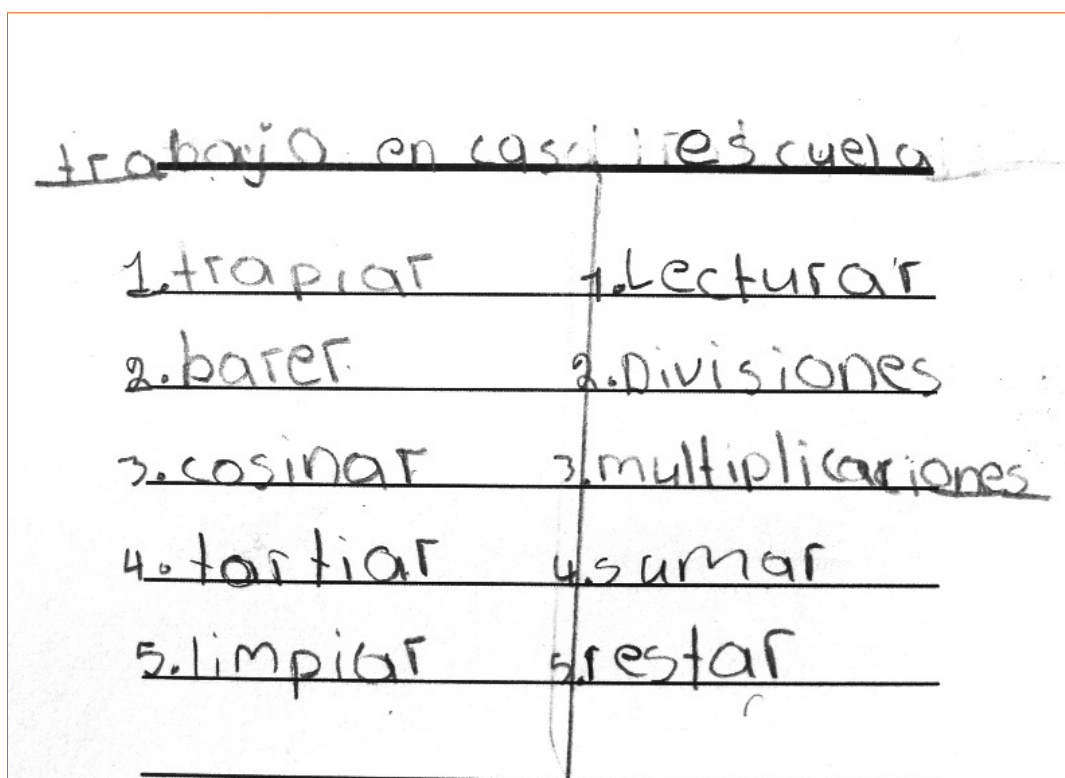 trabajo en casa escuela
1. trapiar
2. barer
3. cosinar
4. tortiar
5. limpiar
1. Lecturar
2. Divisiones
3. multiplicaciones
4. sumar
5. restar